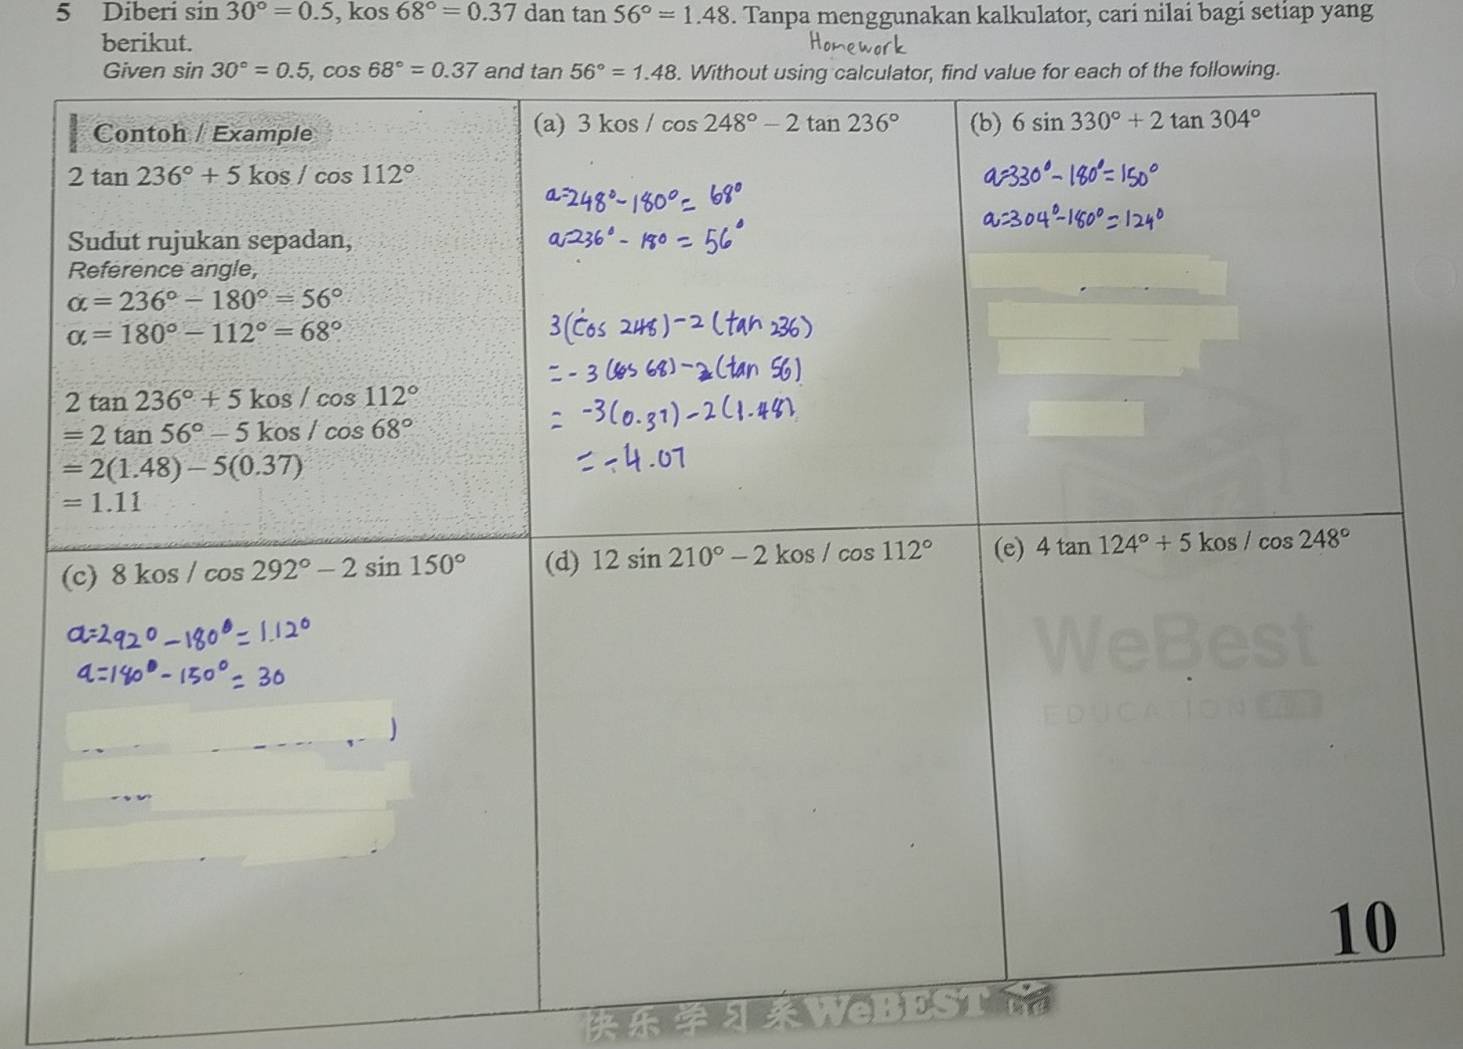 5 Diberi sin 30° = 0.5, kos 68° = 0.37 dan tan 56° = 1.48. Tanpa menggunakan kalkulator, cari nilai bagi setiap yang
berikut.
Homework
Given sin 30° = 0.5, cos 68° = 0.37 and tan 56° = 1.48. Without using calculator, find value for each of the following.
Contoh / Example
2 tan 236° + 5 kos / cos 112°
Sudut rujukan sepadan,
Reference angle,
α = 236° − 180° = 56°
α = 180° − 112° = 68°
2 tan 236° + 5 kos / cos 112°
= 2 tan 56° − 5 kos / cos 68°
= 2(1.48) − 5(0.37)
= 1.11
(a) 3 kos / cos 248° − 2 tan 236°
a=248°-180°= 68°
a=236°-180 = 56°
3(cos 248)-2(tan 236)
= -3(cos 68)-2(tan 56)
= -3(0.37)-2(1.48)
= -4.07
(b) 6 sin 330° + 2 tan 304°
a=330°-180°=150°
a=304°-180°=124°
(c) 8 kos / cos 292° − 2 sin 150°
a=292°-180°=112°
a=180°-150°=30
)
(d) 12 sin 210° − 2 kos / cos 112°
(e) 4 tan 124° + 5 kos / cos 248°
WeBest
EDUCATION
10
快乐学习来WeBEST